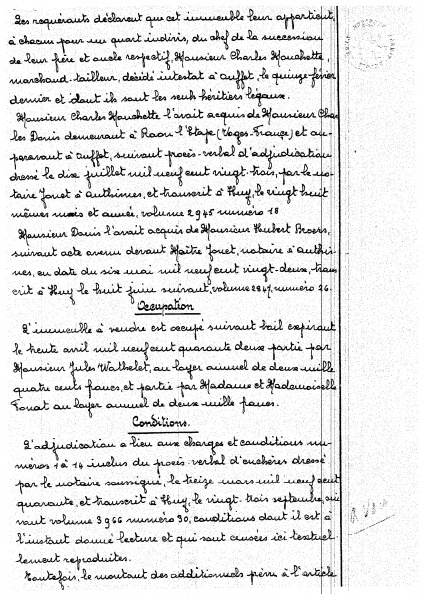 Les requérants déclarent que cet immeuble leur appartient,
à chacun pour un quart indivis, du chef de la succession
de leur frère et oncle respectif, Monsieur Charles Hauchette,
marchand-tailleur, décédé intestat à Auffet, le quinze février
dernier et dont ils sont les seuls héritiers légaux.
Monsieur Charles Hauchette l'avait acquis de Monsieur Char
les Douis demeurant à Raon l'Etape (Vosges-France) et au-
paravant à Auffet, suivant procès-verbal d'adjudication
dressé le dix juillet mil neuf cent vingt-trois, par le no-
taire Jouet à Anthisnes, et transcrit à Huy, le vingt huit
mêmes mois et année, volume 2945 numéro 18
Monsieur Douis l'avait acquis de Monsieur Hubert Broers,
suivant acte avenu devant Maître Jouet, notaire à Anthis-
nes, en date du six mai mil neuf cent vingt-deux, trans
crit à Huy le huit juin suivant, volume 2847, numéro 26.
Occupation
L'immeuble à vendre est occupé suivant bail expirant
le trente avril mil neuf cent quarante deux partie par
Monsieur Jules Wathelet, au loyer annuel de deux mille
quatre cents francs, et partie par Madame et Mademoiselle
au loyer annuel de deux mille francs.
Conditions.
L'adjudication a lieu aux charges et conditions nu-
méros 1 à 14 inclus du procès-verbal d'enchères dressé
par le notaire soussigné, le treize mars mil neuf cent
quarante, et transcrit à Huy, le vingt-trois septembre, sui
vant volume 3966 numéro 30, conditions dont il est à
l'instant donné lecture et qui sont censées ici textuel-
lement reproduites.
Toutefois, le montant des additionnels prévu à l'article